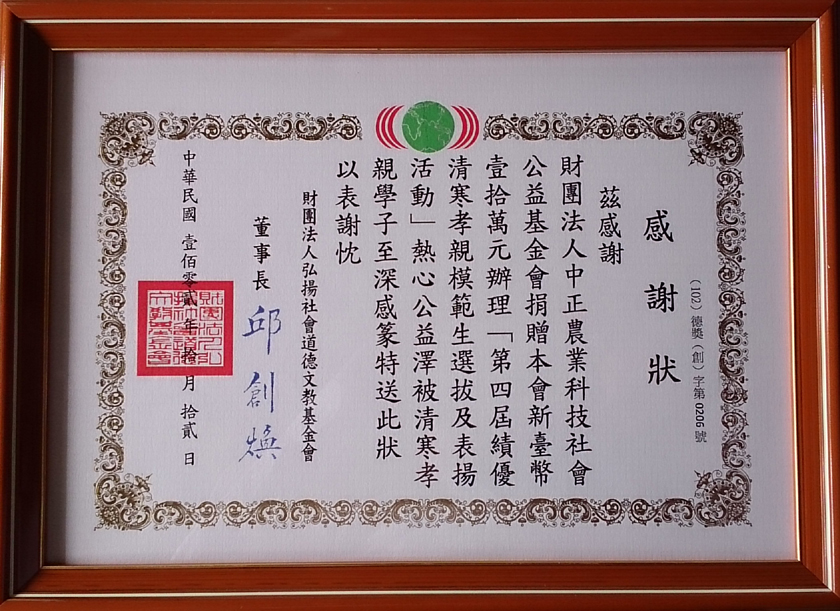 (102) 德獎 (創) 字第 0206 號
感謝狀
茲感謝
財團法人中正農業科技社會
公益基金會捐贈本會新臺幣
壹拾萬元辦理「第四屆績優
清寒孝親模範生選拔及表揚
活動」熱心公益澤被清寒孝
親學子至深感篆特送此狀
以表謝忱
財團法人弘揚社會道德文教基金會
董事長 邱創煥
中華民國 壹佰零貳年 拾 月 拾貳 日